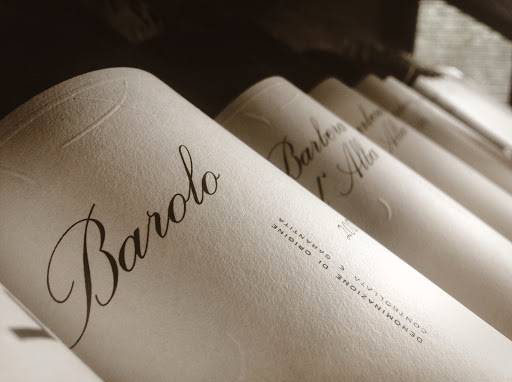 Barolo
DENOMINAZIONE DI ORIGINE
CONTROLLATA E GARANTITA
Barbera
d'Alba